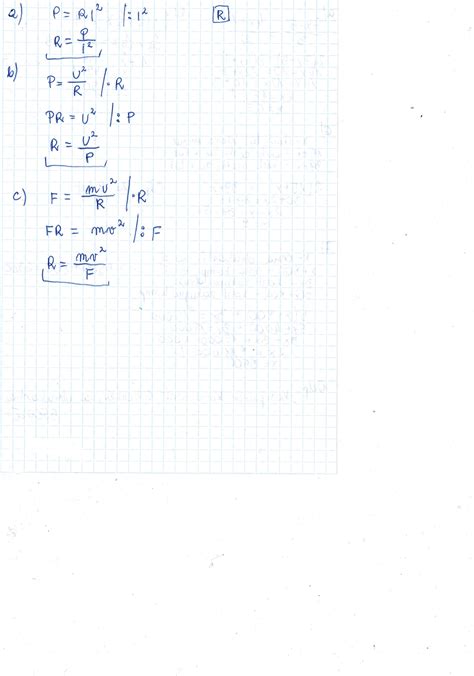 a) P = RI² /: I² R
R = P/I²
b) P = U²/R /· R
PR = U² /: P
R = U²/P
c) F = mv²/R /· R
FR = mv² /: F
R = mv²/F